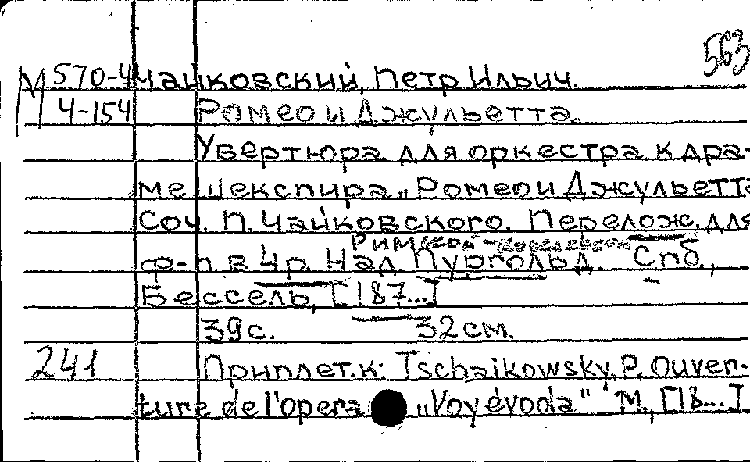 563
М 570-4 Чайковский, Петр Ильич.
4-154 Ромео и Джульетта.
Увертюра для оркестра к дра-
ме Шекспира „Ромео и Джульетта
Соч. П. Чайковского. Перелож. для
Римской-Корсаковой
ф-п. в 4 р. Над. Пургольд. Спб.,
Бессель, [187...]
39 с. 32 см.
241 Приплет. к: Tschaikowsky, P. Ouver-
ture de l'opera „Voyévoda" М., [18...]